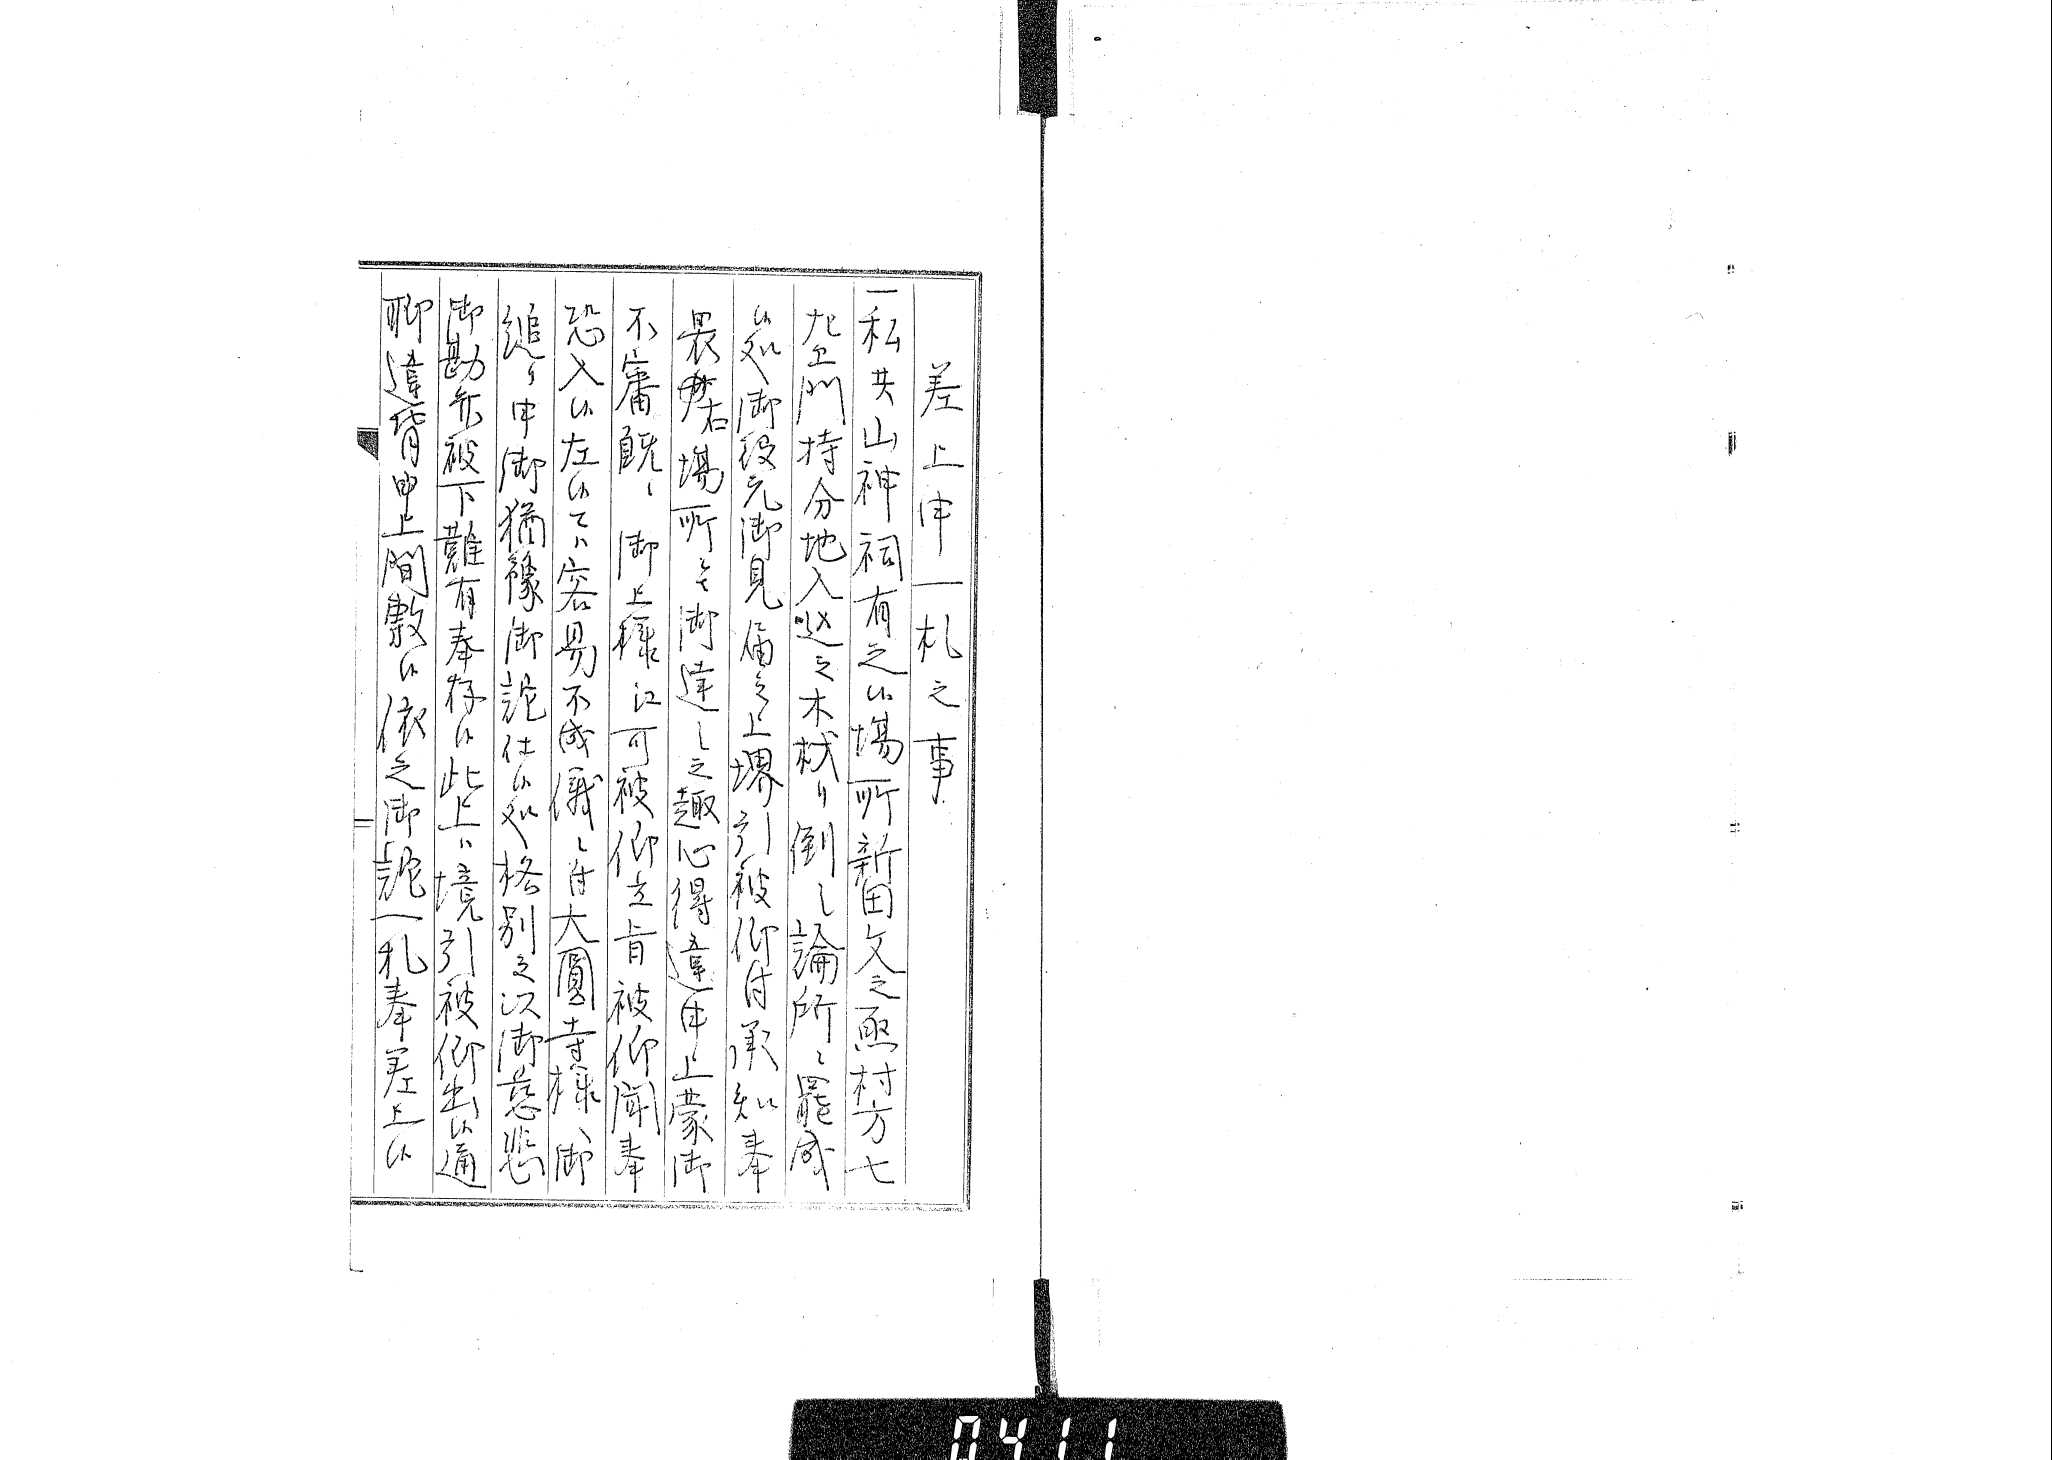 差上申一札之事
一私共山神祠有之候場所新田文之烝村方七
左衛門持分地入込之木材り倒し論所ニ罷成
候処御役元御見届之上堺引被仰付承知奉
畏右場所ニ而御達し之趣心得違申上蒙御
不審既ニ御上様江可被仰立旨被仰聞奉
恐入候左候而ハ容易不成儀ニ付大圓寺様御
縋り申御猶豫御詫仕候処格別之以御慈悲
御勘弁被下難有奉存候此上ハ境引被仰出候通
聊違背申上間敷候依之御詫一札奉差上候
0411